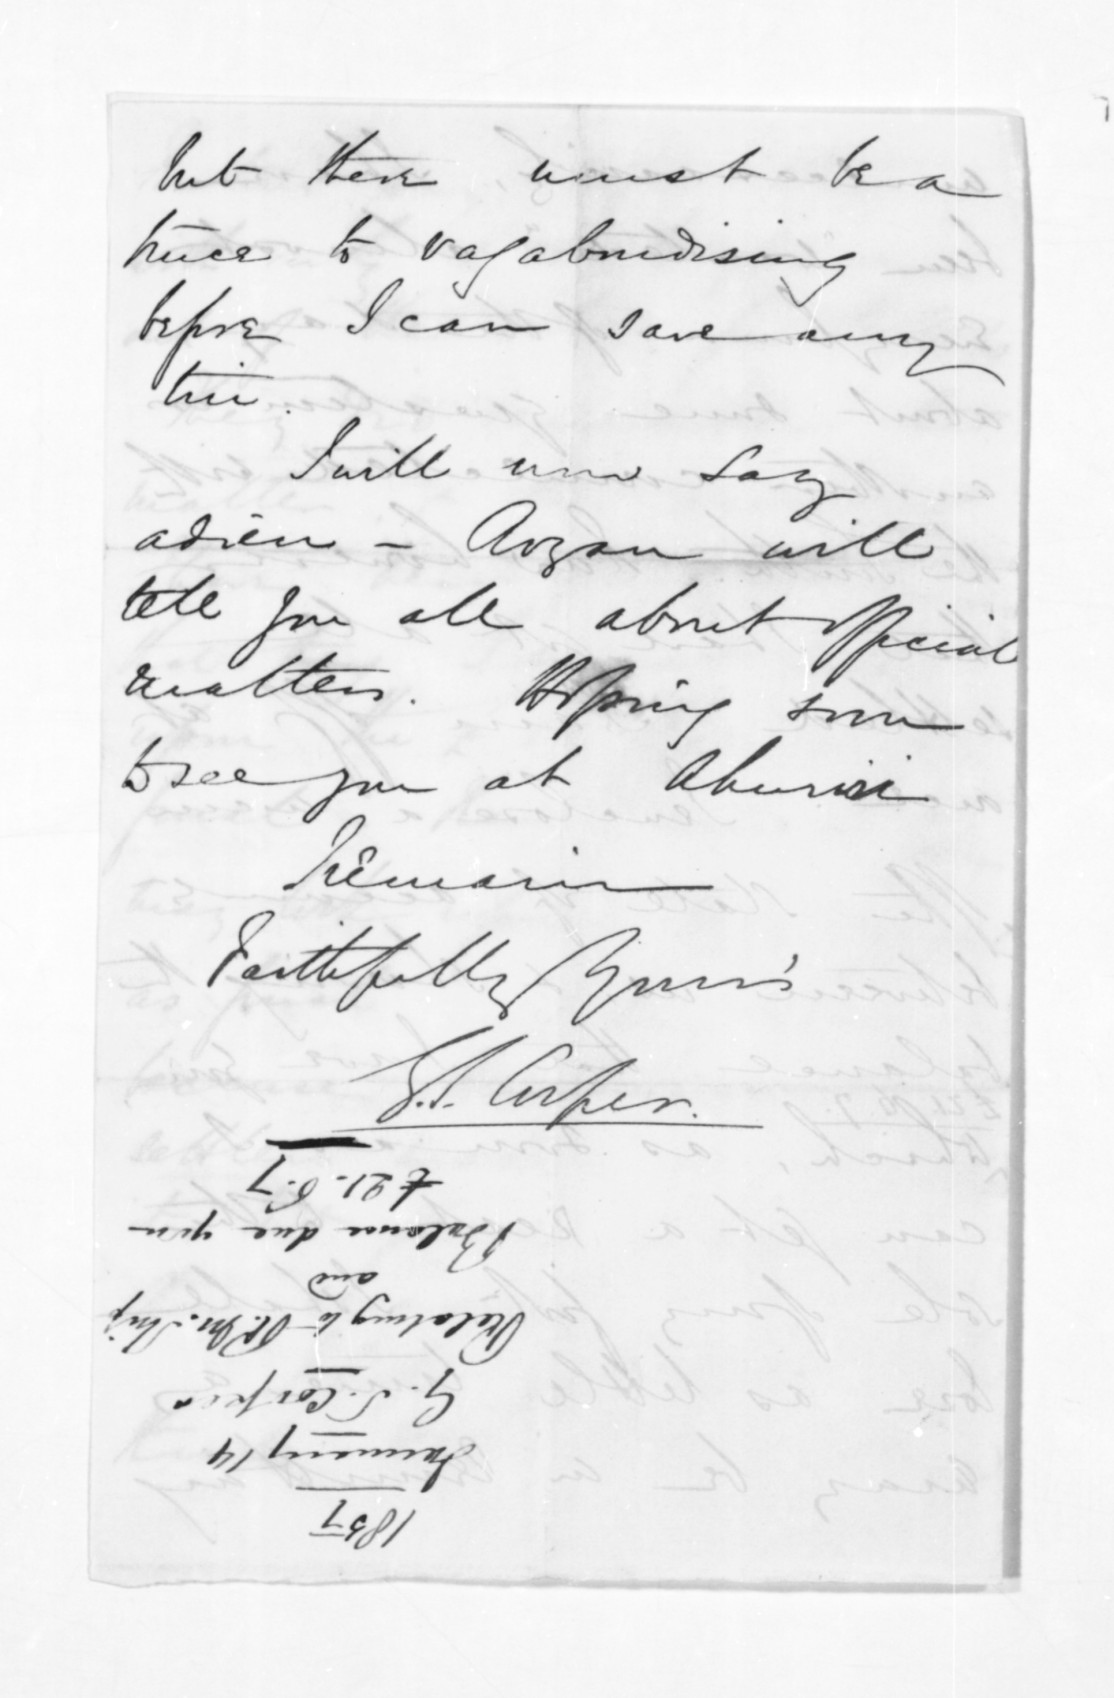 but there must be a
truce to vagabondising
before I can save any
tin.
I will now say
adieu – Rogan will
tell you all about official
matters. Hoping soon
to see you at Ahuriri
I remain
Faithfully Yours
G.S. Cooper.
1857
January 14
G. S. Cooper
Relating to
and
Balance due you
£21.6.7